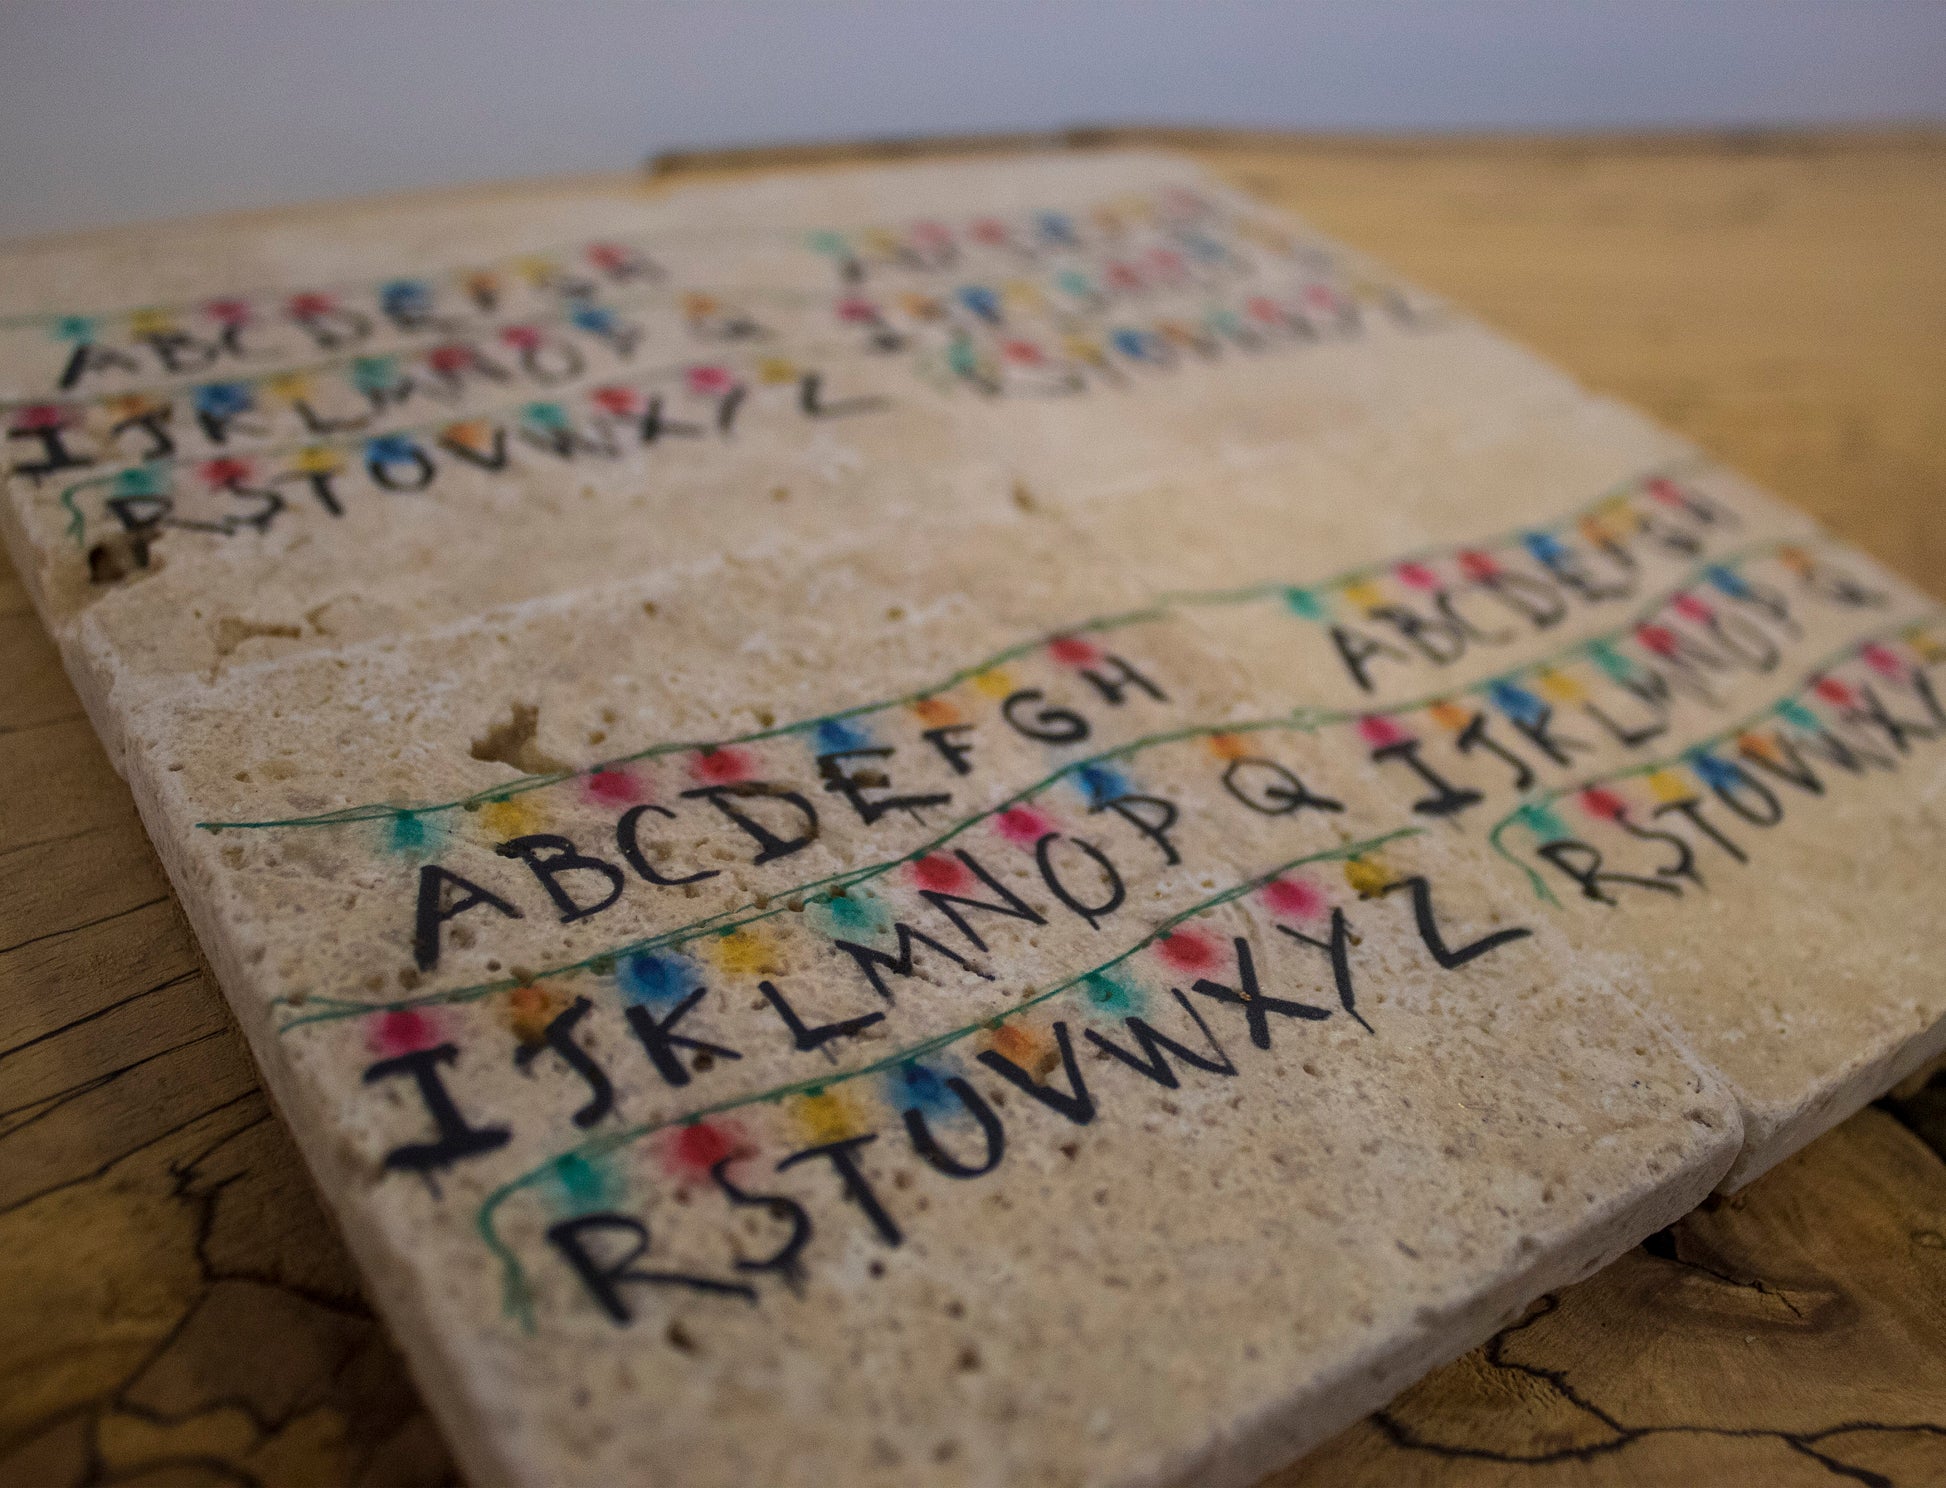 ABCDEFGH
IJKLMNOP Q
RSTUVWXYZ
ABCDEFGH
IJKLMNOP Q
RSTUVWXYZ
ABCDEFGH
IJKLMNOP Q
RSTUVWXY